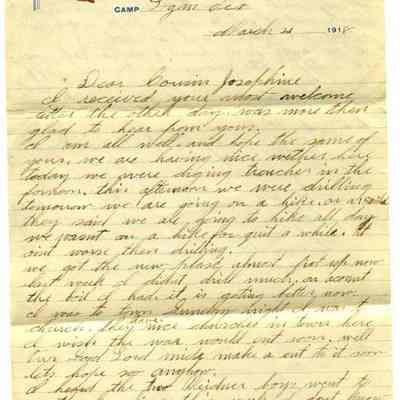 CAMP Logan Tex
March 21 1918
Dear Cousin Josephine
I received your most welcome
letter the other day was more then
glad to hear from you.
I am all well and hope the same of
your. we are having nice wether here
today we were diging trenches in the
forenoon. this afternoon we were drilling
tomorrow we are going on a hike.
they said we are going to hike all day
we wasnt on a hike for quit a while. it
aint worse then drilling.
we got the new place almost fixt up now
last week I didnt drill much, on acount
the boil I had. it is geting better now.
I was to town Sunday night I was to
church. they have nice churches in town here
I wish the war would end soon. well
our Good Lord must make a ent to it soon
lets hope so anyhow.
I heard the two boys went to